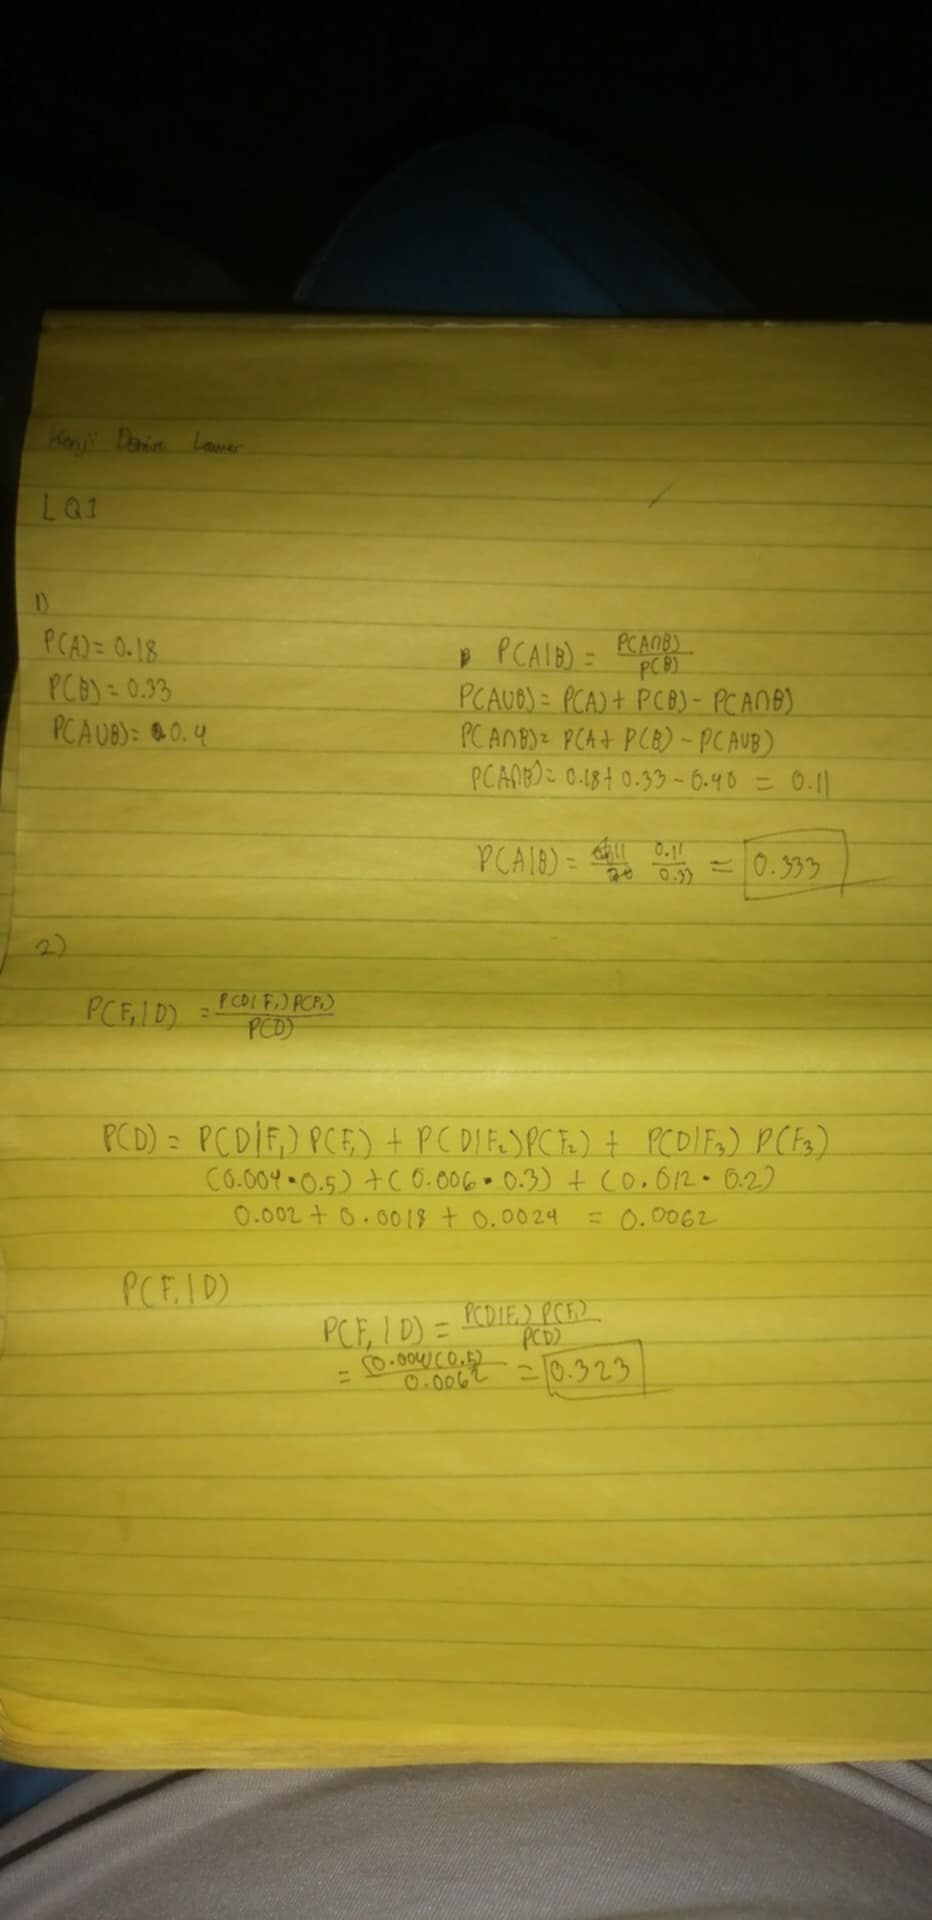 Kenji
LQ1
1)
P(A) = 0.18
P(B) = 0.33
P(AUB) = 0.4
P(A|B) = P(A∩B) / P(B)
P(AUB) = P(A) + P(B) - P(A∩B)
P(A∩B) = P(A + P(B) - P(AUB)
P(A∩B) = 0.18 + 0.33 - 0.40 = 0.11
P(A|B) = 0.11 / 0.33 = 0.333
2)
P(F₁|D) = P(D|F₁) P(F₁) / P(D)
P(D) = P(D|F₁) P(F₁) + P(D|F₂) P(F₂) + P(D|F₃) P(F₃)
(0.004 • 0.5) + (0.006 • 0.3) + (0.012 • 0.2)
0.002 + 0.0018 + 0.0024 = 0.0062
P(F₁|D)
P(F₁|D) = P(D|F₁) P(F₁) / P(D)
= (0.004)(0.5) / 0.0062 = 0.323